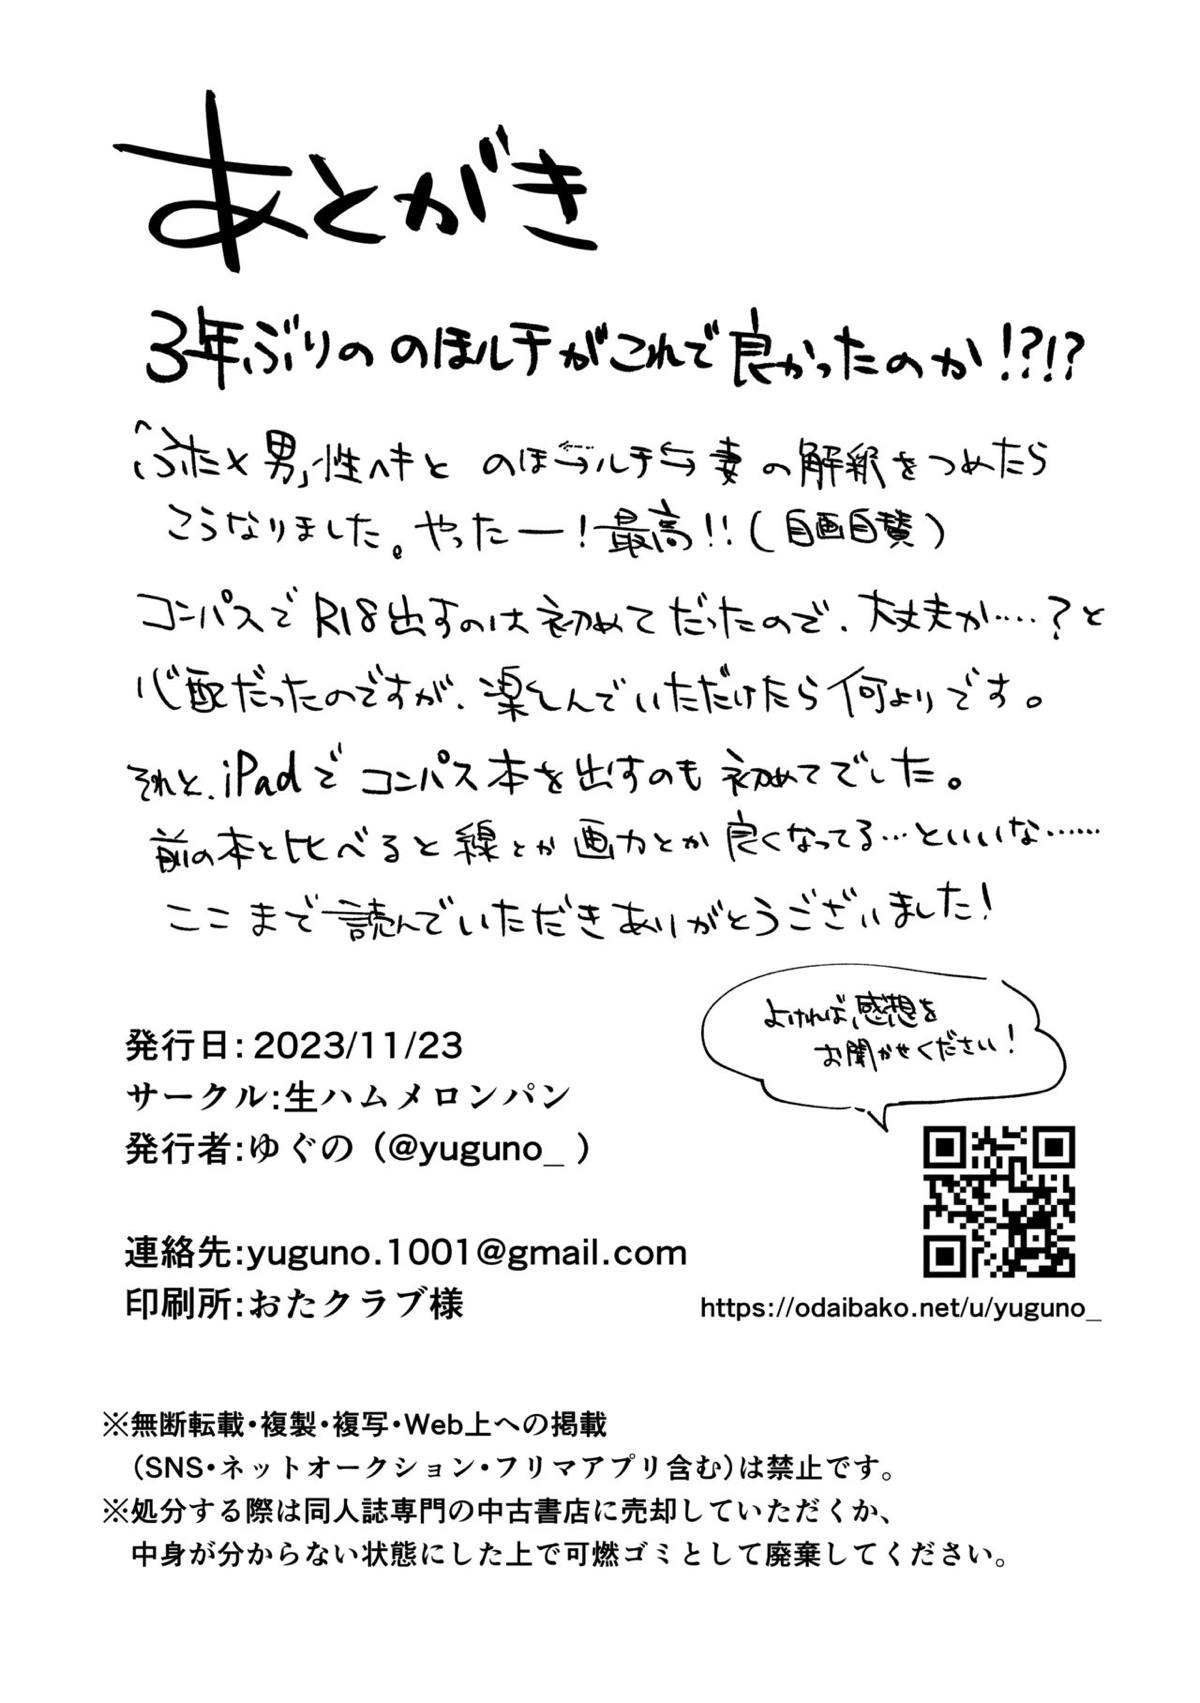 あとがき
3年ぶりの のほルチがこれで良かったのか!?!?
「ふた×男」性ヘキと のほ⇆ルチ⇆妻の解釈をつめたら
こうなりました。やったー!最高!!(自画自賛)
コンパスでR18出すのは初めてだったので、大丈夫か……?と
心配だったのですが、楽しんでいただけたら何よりです。
それと、iPadでコンパス本を出すのも初めてでした。
前の本と比べると線とか画力とか良くなってる…といいな……
ここまで読んでいただきありがとうございました!
よければ感想を
お聞かせください!
発行日: 2023/11/23
サークル:生ハムメロンパン
発行者:ゆぐの(@yuguno_ )
連絡先:yuguno.1001@gmail.com
印刷所:おたクラブ様
https://odaibako.net/u/yuguno_
※無断転載・複製・複写・Web上への掲載
(SNS・ネットオークション・フリマアプリ含む)は禁止です。
※処分する際は同人誌専門の中古書店に売却していただくか、
中身が分からない状態にした上で可燃ゴミとして廃棄してください。